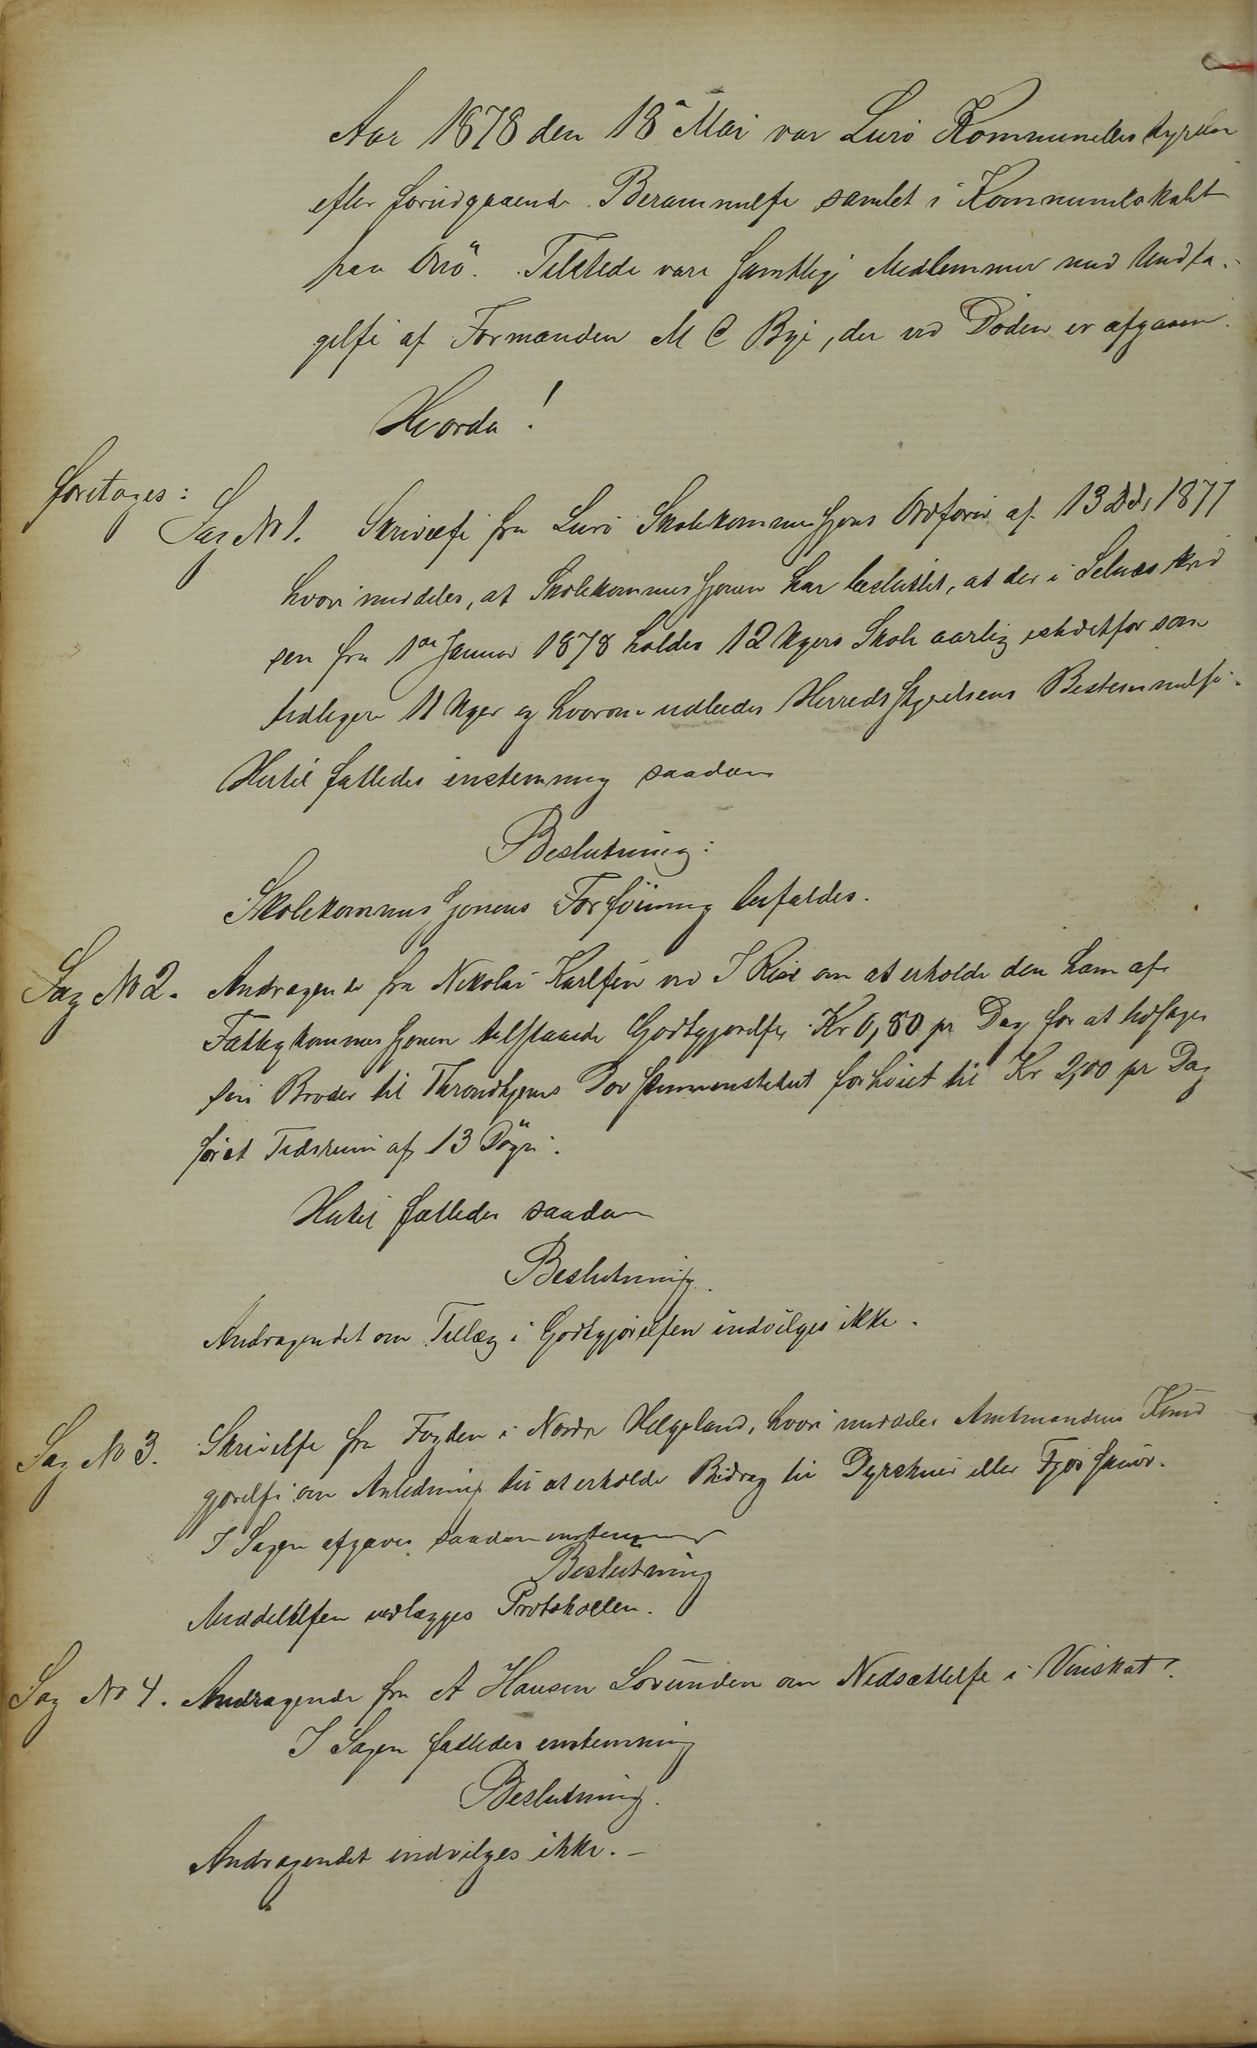 Aar 1878 den 18 Mai var Lurö Kommunebestyrelse
efter forudgaaende Berammelse samlet i Kommunelokalet
paa Onö. Tilstede vare samtlige Medlemmer med Undta-
gelse af Formanden M C Bye, der ved Döden er afgaaen.
Hvorda!
foretoges:
Sag No 1. Skrivelse fra Lurö Skolekommissjons Ordförer af 13 Dd. 1877
hvori meddeles, at Skolekommissjonen har besluttet, at der i Selnæs Kred
sen fra 1ste Januar 1878 holdes 12 Ugers Skole aarlig istedetfor som
tidligere 11 Uger og hvorom udbedes Herredsstyrelsens Bestemmelse.
Hertil fattedes enstemmig saadan
Beslutning:
Skolekommissjonens Forföining bifaldes.
Sag No 2. Andragende fra Nikolai Karlsen ved om at erholde den ham af
Fattigkommissjonen tilstaaede Godtgjørelse Kr 0,80 pr Dag for at ledsage
sin Broder til Throndhjems Dovstummeinstitut forhöiet til Kr 2,00 pr Dag
for et Tidsrum af 13 Dögn.
Hertil fattedes saadan
Beslutning.
Andragendet om Tillæg i Godtgjörelsen indvilges ikke.
Sag No 3. Skrivelse fra Fogden i Nordre Helgeland, hvori meddeles Amtmandens Kund
gjörelse om Anledning til at erholde Bidrag til eller
I Sagen afgaves saadan enstemmig
Beslutning
Meddelelsen vedlægges Protokollen.
Sag No 4. Andragende fra A Hansen Lovunden om Nedsættelse i Skat.
I Sagen fattedes enstemmig
Beslutning.
Andragendet indvilges ikke. –